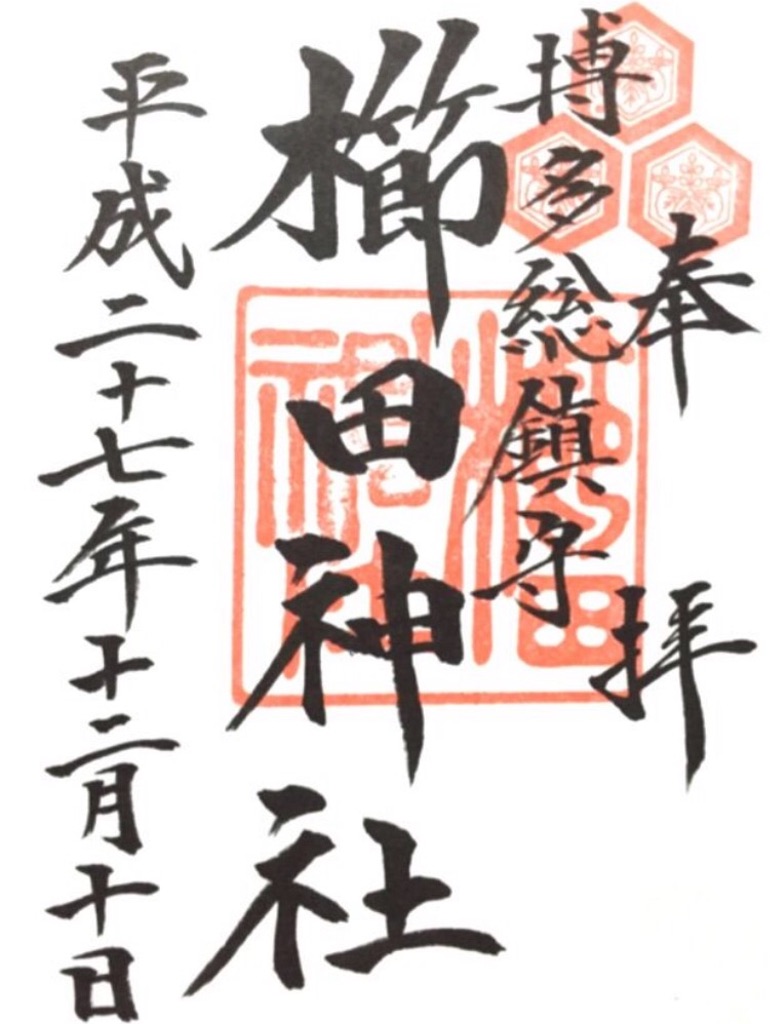 奉拝
博多総鎮守
櫛田神社
平成二十七年十二月十日
櫛田
神社